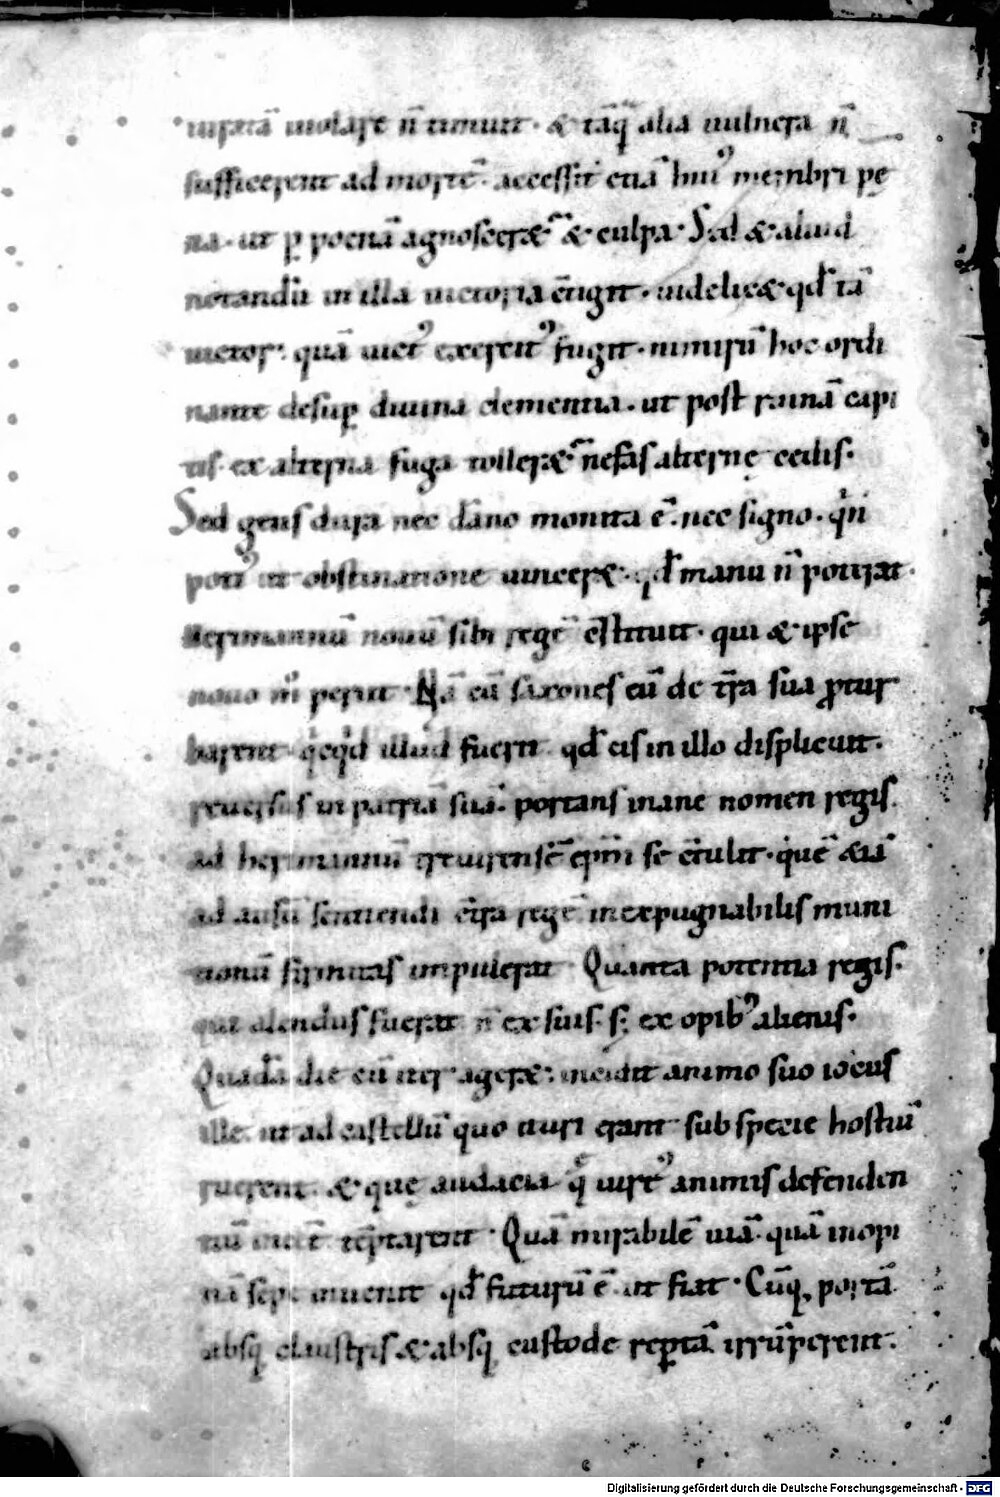 iuratã uiolare ñ timuit · & tãq̃ alia uulnera ñ
sufficerent ad mortẽ · accessit etiã hui᾽ membri pę
na · ut ꝑ poenã agnoscer&̃ & culpa · Sed & aliud
notandũ in illa uictoria c̃tigit · uidelic& qđ tã
uictor · quã uict᾽ exercit᾽ fugit · nimirũ hoc ordi
nante desuꝑ diuina clementia · ut post ruinã capi
tis ex alterna fuga toller&̃ nefas alternę cedis ·
Sed gens dura nec dãno monita ẽ · nec signo · qͥn
poti᾽ ut obstinatione uincer& · qđ manu ñ poterat ·
herimannũ nouũ sibi regẽ c̃stituit · qui & ipse
nouo m̊ periit · Nã eũ saxones cũ de t̃ra sua ꝓtur
barent qͥcqͥd illud fuerit qđ eis in illo displicuit ·
reuersus in patriã suã · portans inane nomen regis
ad herimannũ treuirensẽ ep̃m se c̃tulit · quẽ &iã
ad ausũ sentiendi c̃tra regẽ inexpugnabilis muni
tionũ firmitas impulerat · Quanta potentia regis ·
qui alendus fuerat ñ ex suis · s; ex opib᾽ alienis ·
Quadã die cũ iter ager& · incidit animo suo iocus
ille · ut ad castellũ quo ituri erant sub specie hostiũ
ruerent · & quę audacia qͣ uirt᾽ animis defenden
tiũ inẽẽt tẽptarent · Quã mirabilẽ uiã · quã inopi
nã sepe inuenit qđ futurũ ẽ · ut fiat · Cũq, portã
absq, claustris & absq, custode reꝑtã irrũperent ·
Digitalisierung gefördert durch die Deutsche Forschungsgemeinschaft - DFG